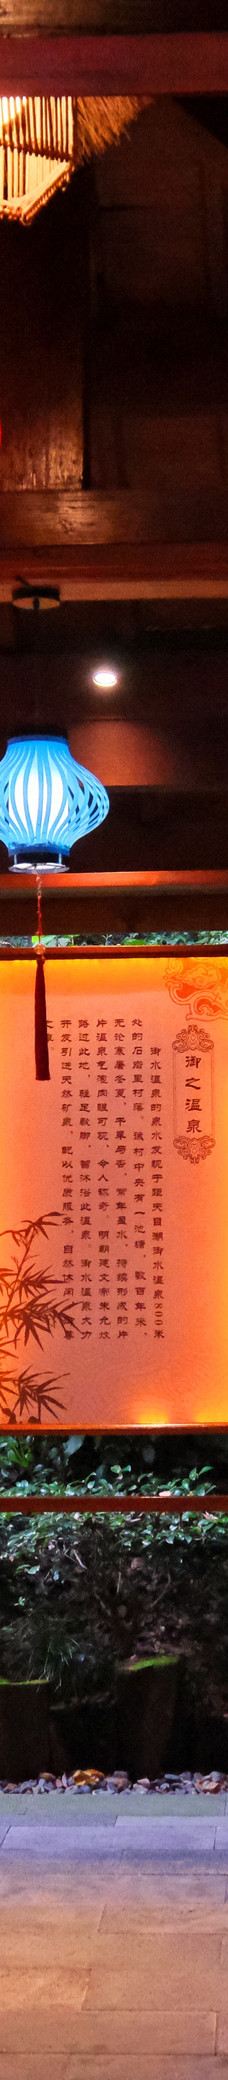 御之温泉
御水温泉的泉水发现于距天目湖御水温泉800米
处的石岩里村落。该村中央有一池塘，数百年来，
无论寒暑冬夏，干旱与否，常年盈水，
片温泉气泡肉眼可见，令人称奇。明朝建文帝朱允炆
路过此地，驻足歇脚，暂沐浴此温泉。御水温泉大力
开发引进天然矿泉，配以优质服务，自然休闲